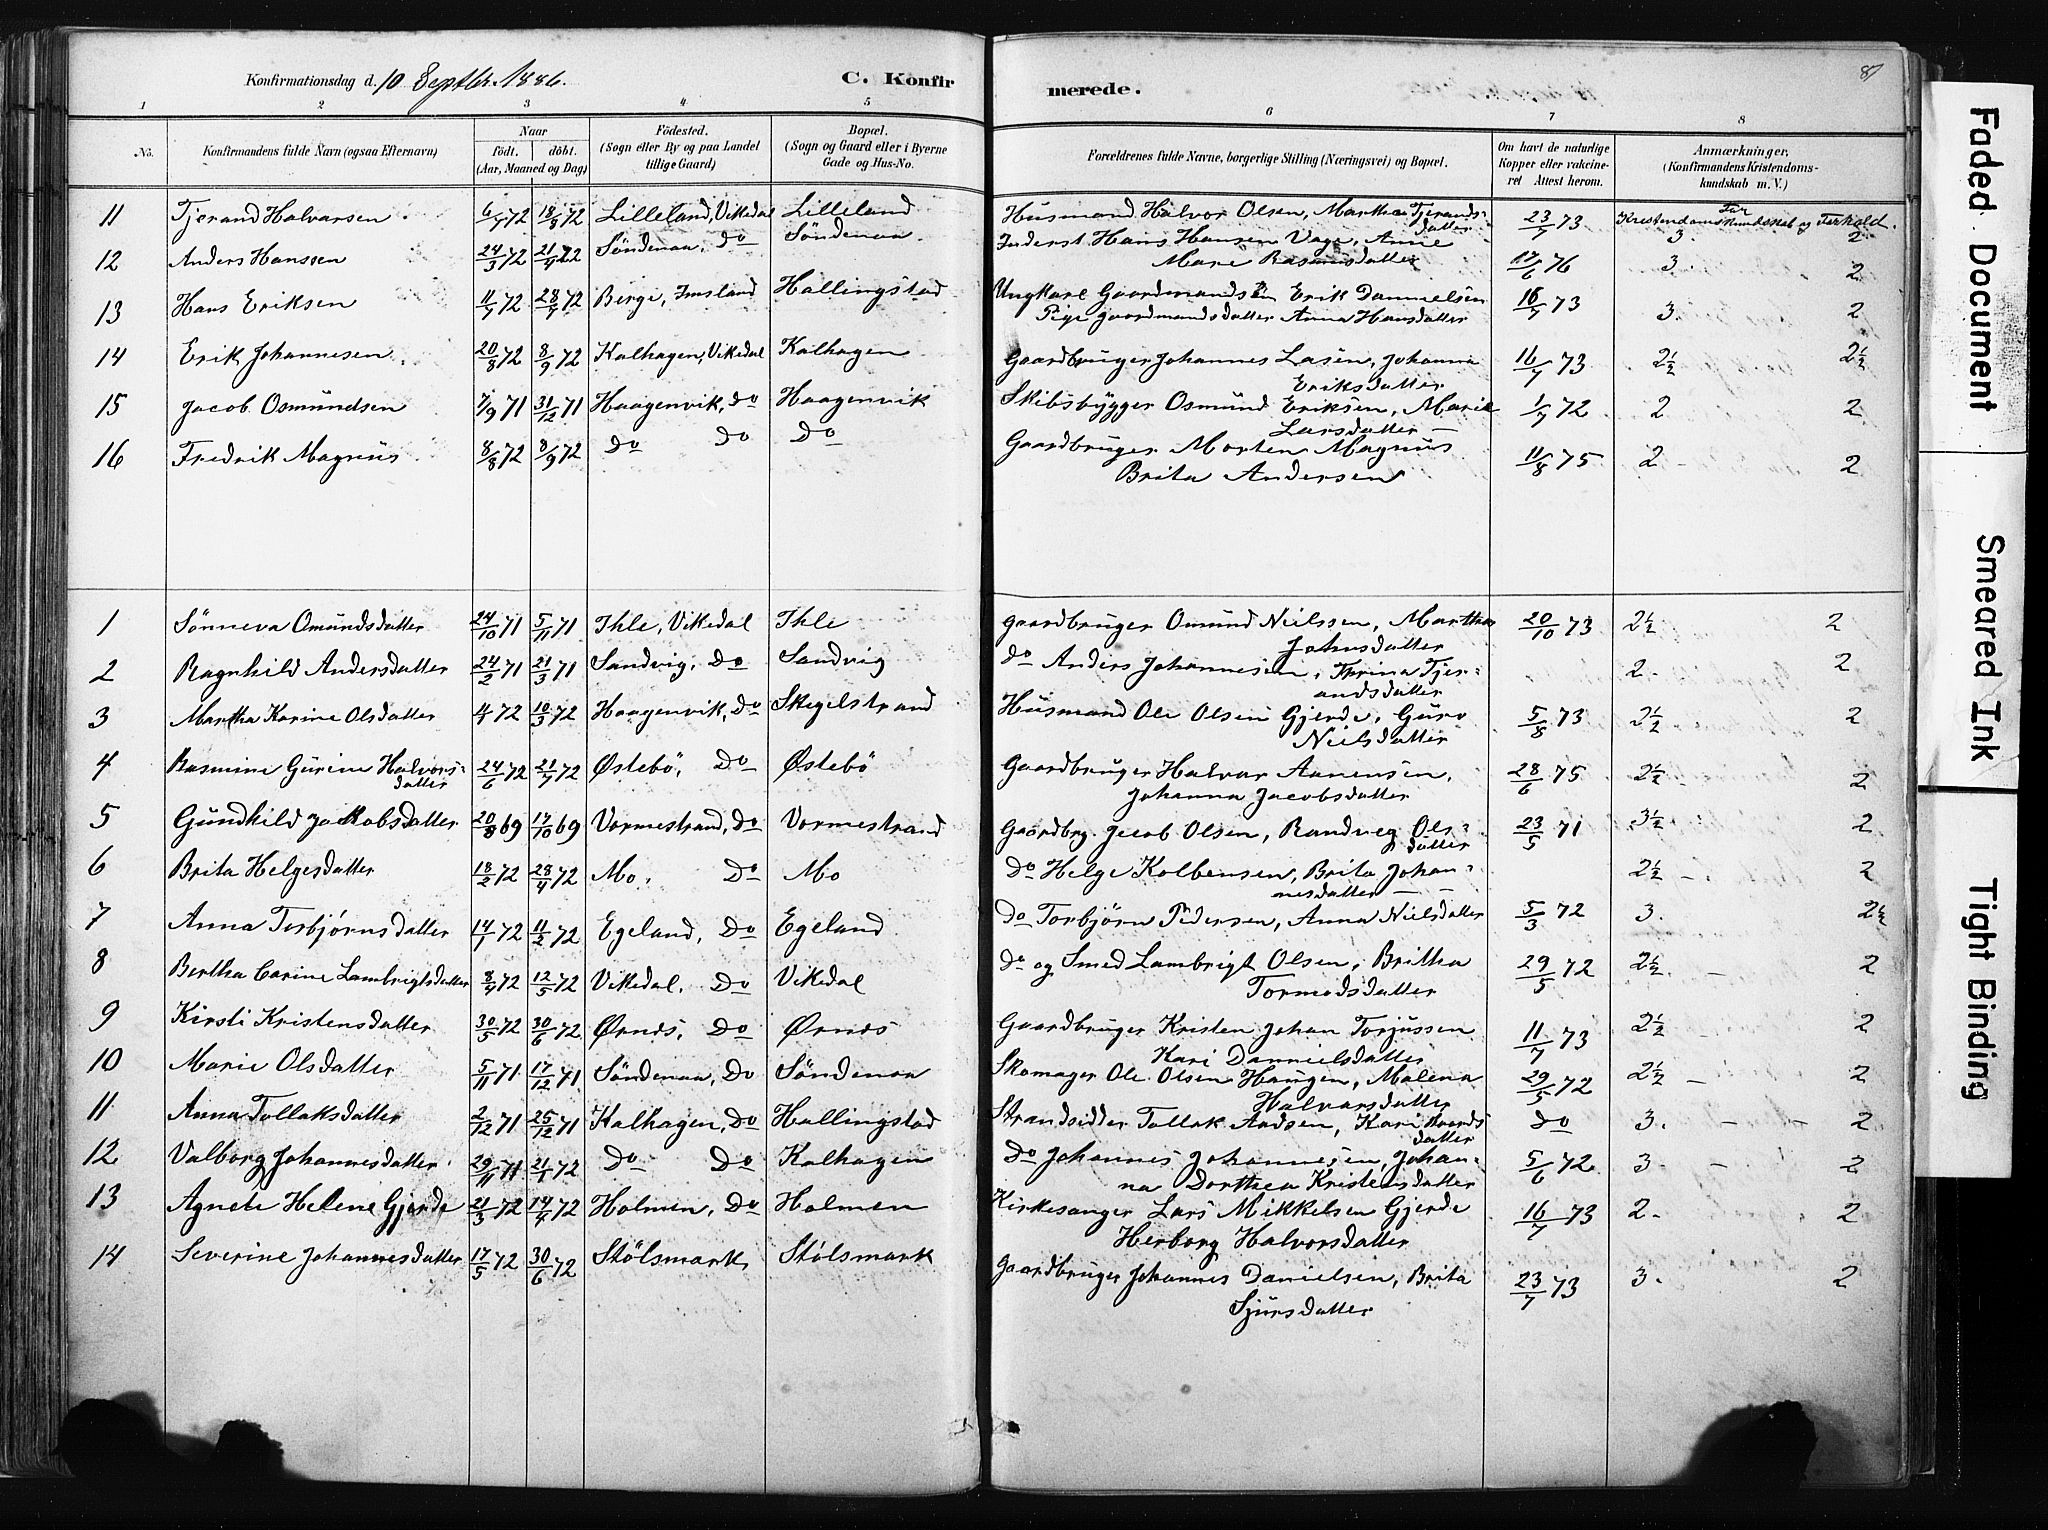 Konfirmationsdag d. 10 Septbr. 1886. C. Konfir merede. 87
1 2 3 4 5 6 7 8
No. Konfirmandens fulde Navn (ogsaa Efternavn) Naar födt. döbt. (Aar, Maaned og Dag) Födested. (Sogn eller By og paa Landet tillige Gaard) Bopæl. (Sogn og Gaard eller i Byerne Gade og Hus-No. Forældrenes fulde Navne, borgerlige Stilling (Næringsvei) og Bopæl. Om havt de naturlige Kopper eller vakcineret Attest herom. Anmærkninger, (Konfirmandens Kristendomskundskab m. V.)
For Kristendomskundskab og Forhold.
11 Tjerand Halvarsen 6/7 72 18/8 72 Lilleland, Vikedal Lilleland Husmand Halvor Olsen, Martha Tjerands=
datter 23/7 73 3. 2
12 Anders Hanssen 24/3 72 21/4 72 Söndenaa, Do Söndenaa Inderst Hans Hansen Vage, Anne
Marie Rasmusdatter 17/6 76 3. 2
13 Hans Eriksen 11/7 72 28/7 72 Berge, Imsland Hallingstad Ungkarl Gaardmandsön Erik Dannielsen
Pige gaardmandsdatter Anna Hansdatter 16/7 73 3. 2
14 Erik Johannesen 20/8 72 8/9 72 Kalhagen, Vikedal Kalhagen Gaardbruger Johannes Lasen, Johanna
Eriksdatter 16/7 73 2½ 2½
15 Jacob Osmundsen 7/9 71 31/12 71 Haagenvik, Do Haagenvik Skibsbygger Osmund Eriksen, Marie
Larsdatter 1/7 72 2 2
16 Fredrik Magnus 8/8 72 8/9 72 Do Do Do Gaardbruger Morten Magnus
Brita Andersen 11/8 75 2 2
1 Sönneva Omundsdatter 24/10 71 5/11 71 Ihle, Vikedal Ihle gaardbruger Omund Nielssen, Martha
Johnsdatter 20/10 73 2½ 2
2 Ragnhild Andersdatter 24/2 71 21/3 71 Sandvig, Do Sandvig Do Anders Johannesen, Thrina Tjer=
andsdatter 2. 2
3 Martha Karine Olsdatter 4/1 72 10/3 72 Haagenvik, Do Skegelstrand Husmand Ole Olsen Gjerde, Guro
Nielsdatter 5/8 73 2½ 2
4 Rasmine Gurine Halvors=
datter 24/6 72 21/7 72 Østebö, Do Østebö Gaardbruger Halvar Aanensen,
Johanna Jacobsdatter 28/6 75 2½ 2
5 Gundhild Jakobsdatter 20/8 69 17/10 69 Vormestrand, Do Vormestrand Gaardbrg. Jacob Olsen, Randveg Ols=
datter 23/5 71 3½ 2
6 Brita Helgesdatter 18/2 72 28/4 72 Mo, Do Mo Do Helge Kolbensen, Brita Johan=
nesdatter 2½ 2
7 Anna Torbjörnsdatter 14/1 72 11/2 72 Egeland, Do Egeland Do Torbjörn Pedersen, Anna Nielsdatter 5/3 72 3. 2½
8 Bertha Carine Lambrigtsdatter 8/4 72 12/5 72 Vikedal, Do Vikedal Do og Smed Lambrigt Olsen, Britha
Tormodsdatter 29/5 72 2½ 2
9 Kirsti Kristensdatter 30/5 72 30/6 72 Ørnes, Do Ørnes Gaardbruger Kristen Johan Torjussen
Kari Dannielsdatter 11/7 73 2½ 2
10 Marie Olsdatter 5/11 71 17/12 71 Söndenaa, Do Söndenaa Skomager Ole Olsen Haugen, Malena
Halvarsdatter 29/5 72 2½ 2
11 Anna Tollaksdatter 2/12 71 25/12 71 Kalhagen, Do Hallingstad Strandsidder Tollak Aadsen, Kari
datter Do 3. 2
12 Valborg Johannesdatter 29/11 71 21/1 72 Do Do Kalhagen Do Johannes Johannesen, Johan=
na Dorthea Kristensdatter 5/6 72 3 2
13 Agnete Helene Gjerde 21/3 72 14/4 72 Holmen, Do Holmen Kirkesanger Lars Mikkelsen Gjerde
Herborg Halvorsdatter 16/7 73 2 2
14 Severine Johannesdatter 17/5 72 30/6 72 Stölsmark Stölsmark Gaardbruger Johannes Danielsen, Brita
Sjursdatter 23/7 73 3. 2
Faded Document
Smeared Ink
Tight Binding